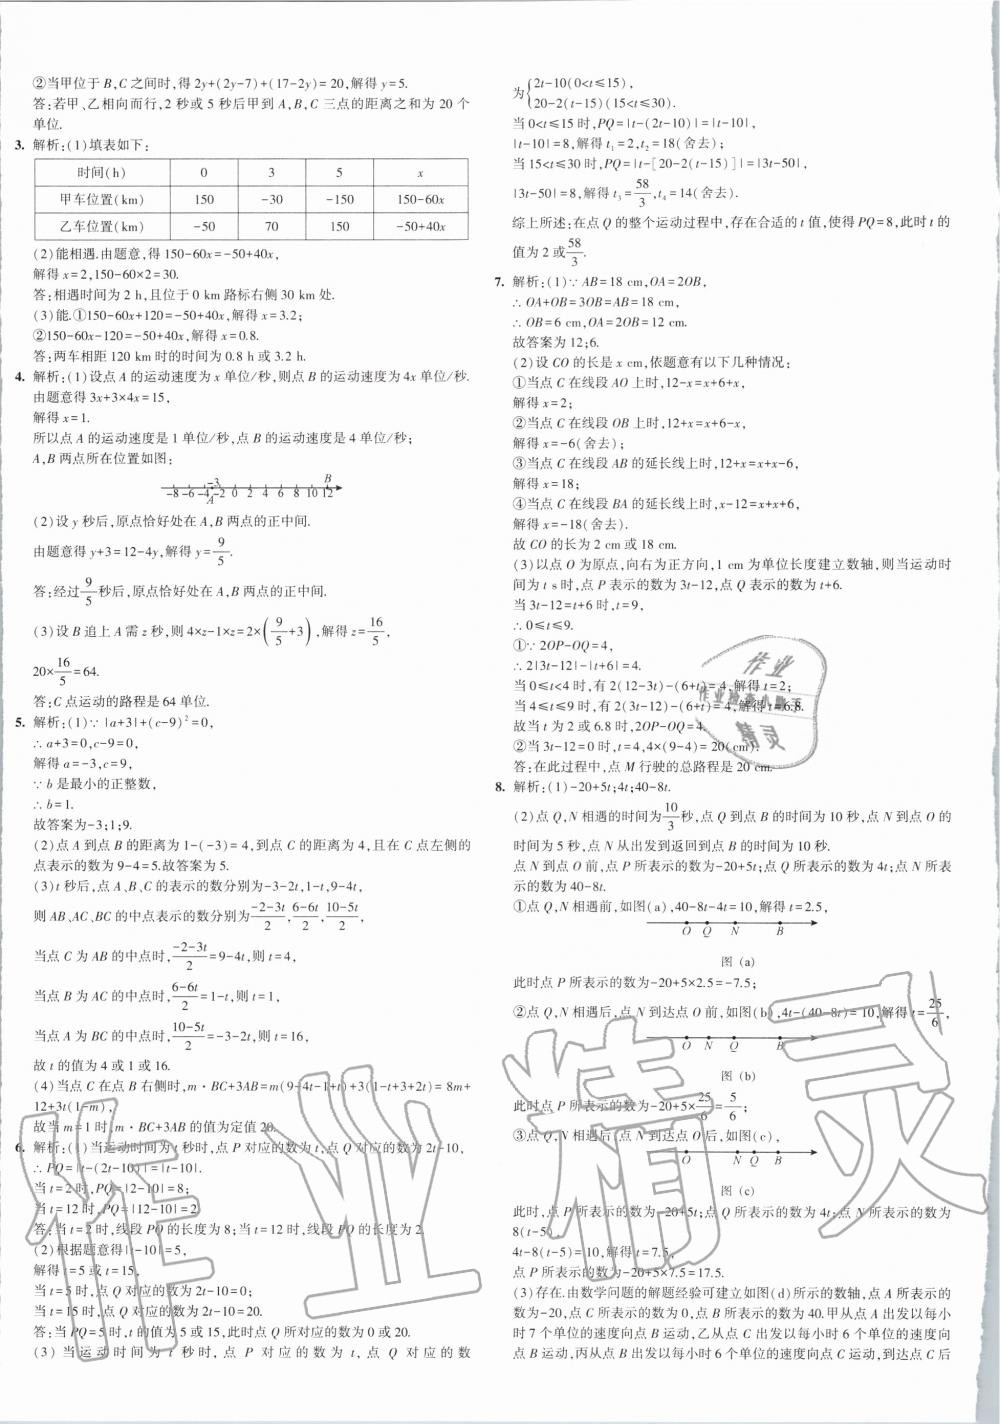 ②当甲位于 B,C 之间时,得 2y+(2y-7)+(17-2y)=20,解得 y=5.
答:若甲、乙相向而行,2 秒或 5 秒后甲到 A,B,C 三点的距离之和为 20 个
单位.
3. 解析:(1)填表如下:
时间(h) 0 3 5 x
甲车位置(km) 150 -30 -150 150-60x
乙车位置(km) -50 70 150 -50+40x
(2)能相遇.由题意,得 150-60x=-50+40x,
解得 x=2,150-60×2=30.
答:相遇时间为 2 h,且位于 0 km 路标右侧 30 km 处.
(3)能.①150-60x+120=-50+40x,解得 x=3.2;
②150-60x-120=-50+40x,解得 x=0.8.
答:两车相距 120 km 时的时间为 0.8 h 或 3.2 h.
4. 解析:(1)设点 A 的运动速度为 x 单位/秒,则点 B 的运动速度为 4x 单位/秒.
由题意得 3x+3×4x=15,
解得 x=1.
所以点 A 的运动速度是 1 单位/秒,点 B 的运动速度是 4 单位/秒;
A,B 两点所在位置如图:
-3 B
-8 -6 -4 -2 0 2 4 6 8 10 12
A
(2)设 y 秒后,原点恰好处在 A,B 两点的正中间.
由题意得 y+3=12-4y,解得 y=9/5.
答:经过9/5秒后,原点恰好处在 A,B 两点的正中间.
(3)设 B 追上 A 需 z 秒,则 4×z-1×z=2×(9/5+3),解得 z=16/5,
20×16/5=64.
答:C 点运动的路程是 64 单位.
5. 解析:(1)∵ |a+3|+(c-9)²=0,
∴ a+3=0,c-9=0,
解得 a=-3,c=9,
∵ b 是最小的正整数,
∴ b=1.
故答案为-3;1;9.
(2)点 A 到点 B 的距离为 1-(-3)=4,到点 C 的距离为 4,且在 C 点左侧的
点表示的数为 9-4=5.故答案为 5.
(3)t 秒后,点 A、B、C 的表示的数分别为-3-2t,1-t,9-4t,
则 AB、AC、BC 的中点表示的数分别为(-2-3t)/2,(6-6t)/2,(10-5t)/2,
当点 C 为 AB 的中点时,(-2-3t)/2=9-4t,则 t=4,
当点 B 为 AC 的中点时,(6-6t)/2=1-t,则 t=1,
当点 A 为 BC 的中点时,(10-5t)/2=-3-2t,则 t=16,
故 t 的值为 4 或 1 或 16.
(4)当点 C 在点 B 右侧时,m·BC+3AB=m(9-4t-1+t)+3(1-t+3+2t)=8m+
12+3t(1-m),
故当 m=1 时,m·BC+3AB 的值为定值 20.
6. 解析:(1)当运动时间为 t 秒时,点 P 对应的数为 t,点 Q 对应的数为 2t-10,
∴ PQ=|t-(2t-10)|=|t-10|.
当 t=2 时,PQ=|2-10|=8;
当 t=12 时,PQ=|12-10|=2.
答:当 t=2 时,线段 PQ 的长度为 8;当 t=12 时,线段 PQ 的长度为 2.
(2)根据题意得|t-10|=5,
解得 t=5 或 t=15,
当 t=5 时,点 Q 对应的数为 2t-10=0;
当 t=15 时,点 Q 对应的数为 2t-10=20.
答:当 PQ=5 时,t 的值为 5 或 15,此时点 Q 所对应的数为 0 或 20.
(3) 当 运 动 时 间 为 t 秒 时, 点 P 对 应 的 数 为 t, 点 Q 对 应 的 数
为{2t-10(0<t≤15),
20-2(t-15)(15<t≤30).
当 0<t≤15 时,PQ=|t-(2t-10)|=|t-10|,
|t-10|=8,解得 t₁=2,t₂=18(舍去);
当 15<t≤30 时,PQ=|t-[20-2(t-15)]|=|3t-50|,
|3t-50|=8,解得 t₃=58/3,t₄=14(舍去).
综上所述:在点 Q 的整个运动过程中,存在合适的 t 值,使得 PQ=8,此时 t 的
值为 2 或58/3.
7. 解析:(1)∵ AB=18 cm,OA=2OB,
∴ OA+OB=3OB=AB=18 cm,
∴ OB=6 cm,OA=2OB=12 cm.
故答案为 12;6.
(2)设 CO 的长是 x cm,依题意有以下几种情况:
①当点 C 在线段 AO 上时,12-x=x+6+x,
解得 x=2;
②当点 C 在线段 OB 上时,12+x=x+6-x,
解得 x=-6(舍去);
③当点 C 在线段 AB 的延长线上时,12+x=x+x-6,
解得 x=18;
④当点 C 在线段 BA 的延长线上时,x-12=x+x+6,
解得 x=-18(舍去).
故 CO 的长为 2 cm 或 18 cm.
(3)以点 O 为原点,向右为正方向,1 cm 为单位长度建立数轴,则当运动时
间为 t s 时,点 P 表示的数为 3t-12,点 Q 表示的数为 t+6.
当 3t-12=t+6 时,t=9,
∴ 0≤t≤9.
①∵ 2OP-OQ=4,
∴ 2|3t-12|-|t+6|=4.
当 0≤t<4 时,有 2(12-3t)-(6+t)=4,解得 t=2;
当 4≤t≤9 时,有 2(3t-12)-(6+t)=4,解得 t=6.8.
故当 t 为 2 或 6.8 时,2OP-OQ=4.
②当 3t-12=0 时,t=4,4×(9-4)=20(cm).
答:在此过程中,点 M 行驶的总路程是 20 cm.
8. 解析:(1)-20+5t;4t;40-8t.
(2)点 Q,N 相遇的时间为10/3秒,点 Q 到点 B 的时间为 10 秒,点 N 到点 O 的
时间为 5 秒,点 N 从出发到返回到点 B 的时间为 10 秒.
点 N 到点 O 前,点 P 所表示的数为-20+5t;点 Q 所表示的数为 4t;点 N 所表
示的数为 40-8t.
①点 Q,N 相遇前,如图(a),40-8t-4t=10,解得 t=2.5,
O Q N B
图 (a)
此时点 P 所表示的数为-20+5×2.5=-7.5;
②点 Q,N 相遇后,点 N 到达点 O 前,如图(b),4t-(40-8t)=10,解得 t=25/6,
O N Q B
图 (b)
此时点 P 所表示的数为-20+5×25/6=5/6;
③点 Q,N 相遇后,点 N 到达点 O 后,如图(c),
O N Q B
图 (c)
此时,点 P 所表示的数为-20+5t;点 Q 所表示的数为 4t;点 N 所表示的数为
8(t-5).
4t-8(t-5)=10,解得 t=7.5,
点 P 所表示的数为-20+5×7.5=17.5.
(3)存在.由数学问题的解题经验可建立如图(d)所示的数轴,点 A 所表示
的数为-20,点 C 所表示的数为 0,点 B 所表示的数为 40.甲从点 A 出发以每小
时 7 个单位的速度向点 B 运动,乙从点 C 出发以每小时 6 个单位的速度向
点 B 运动,丙从点 B 出发以每小时 6 个单位的速度向点 C 运动,到达点 C 后
作业
作业检查小助手
精灵
作业精灵